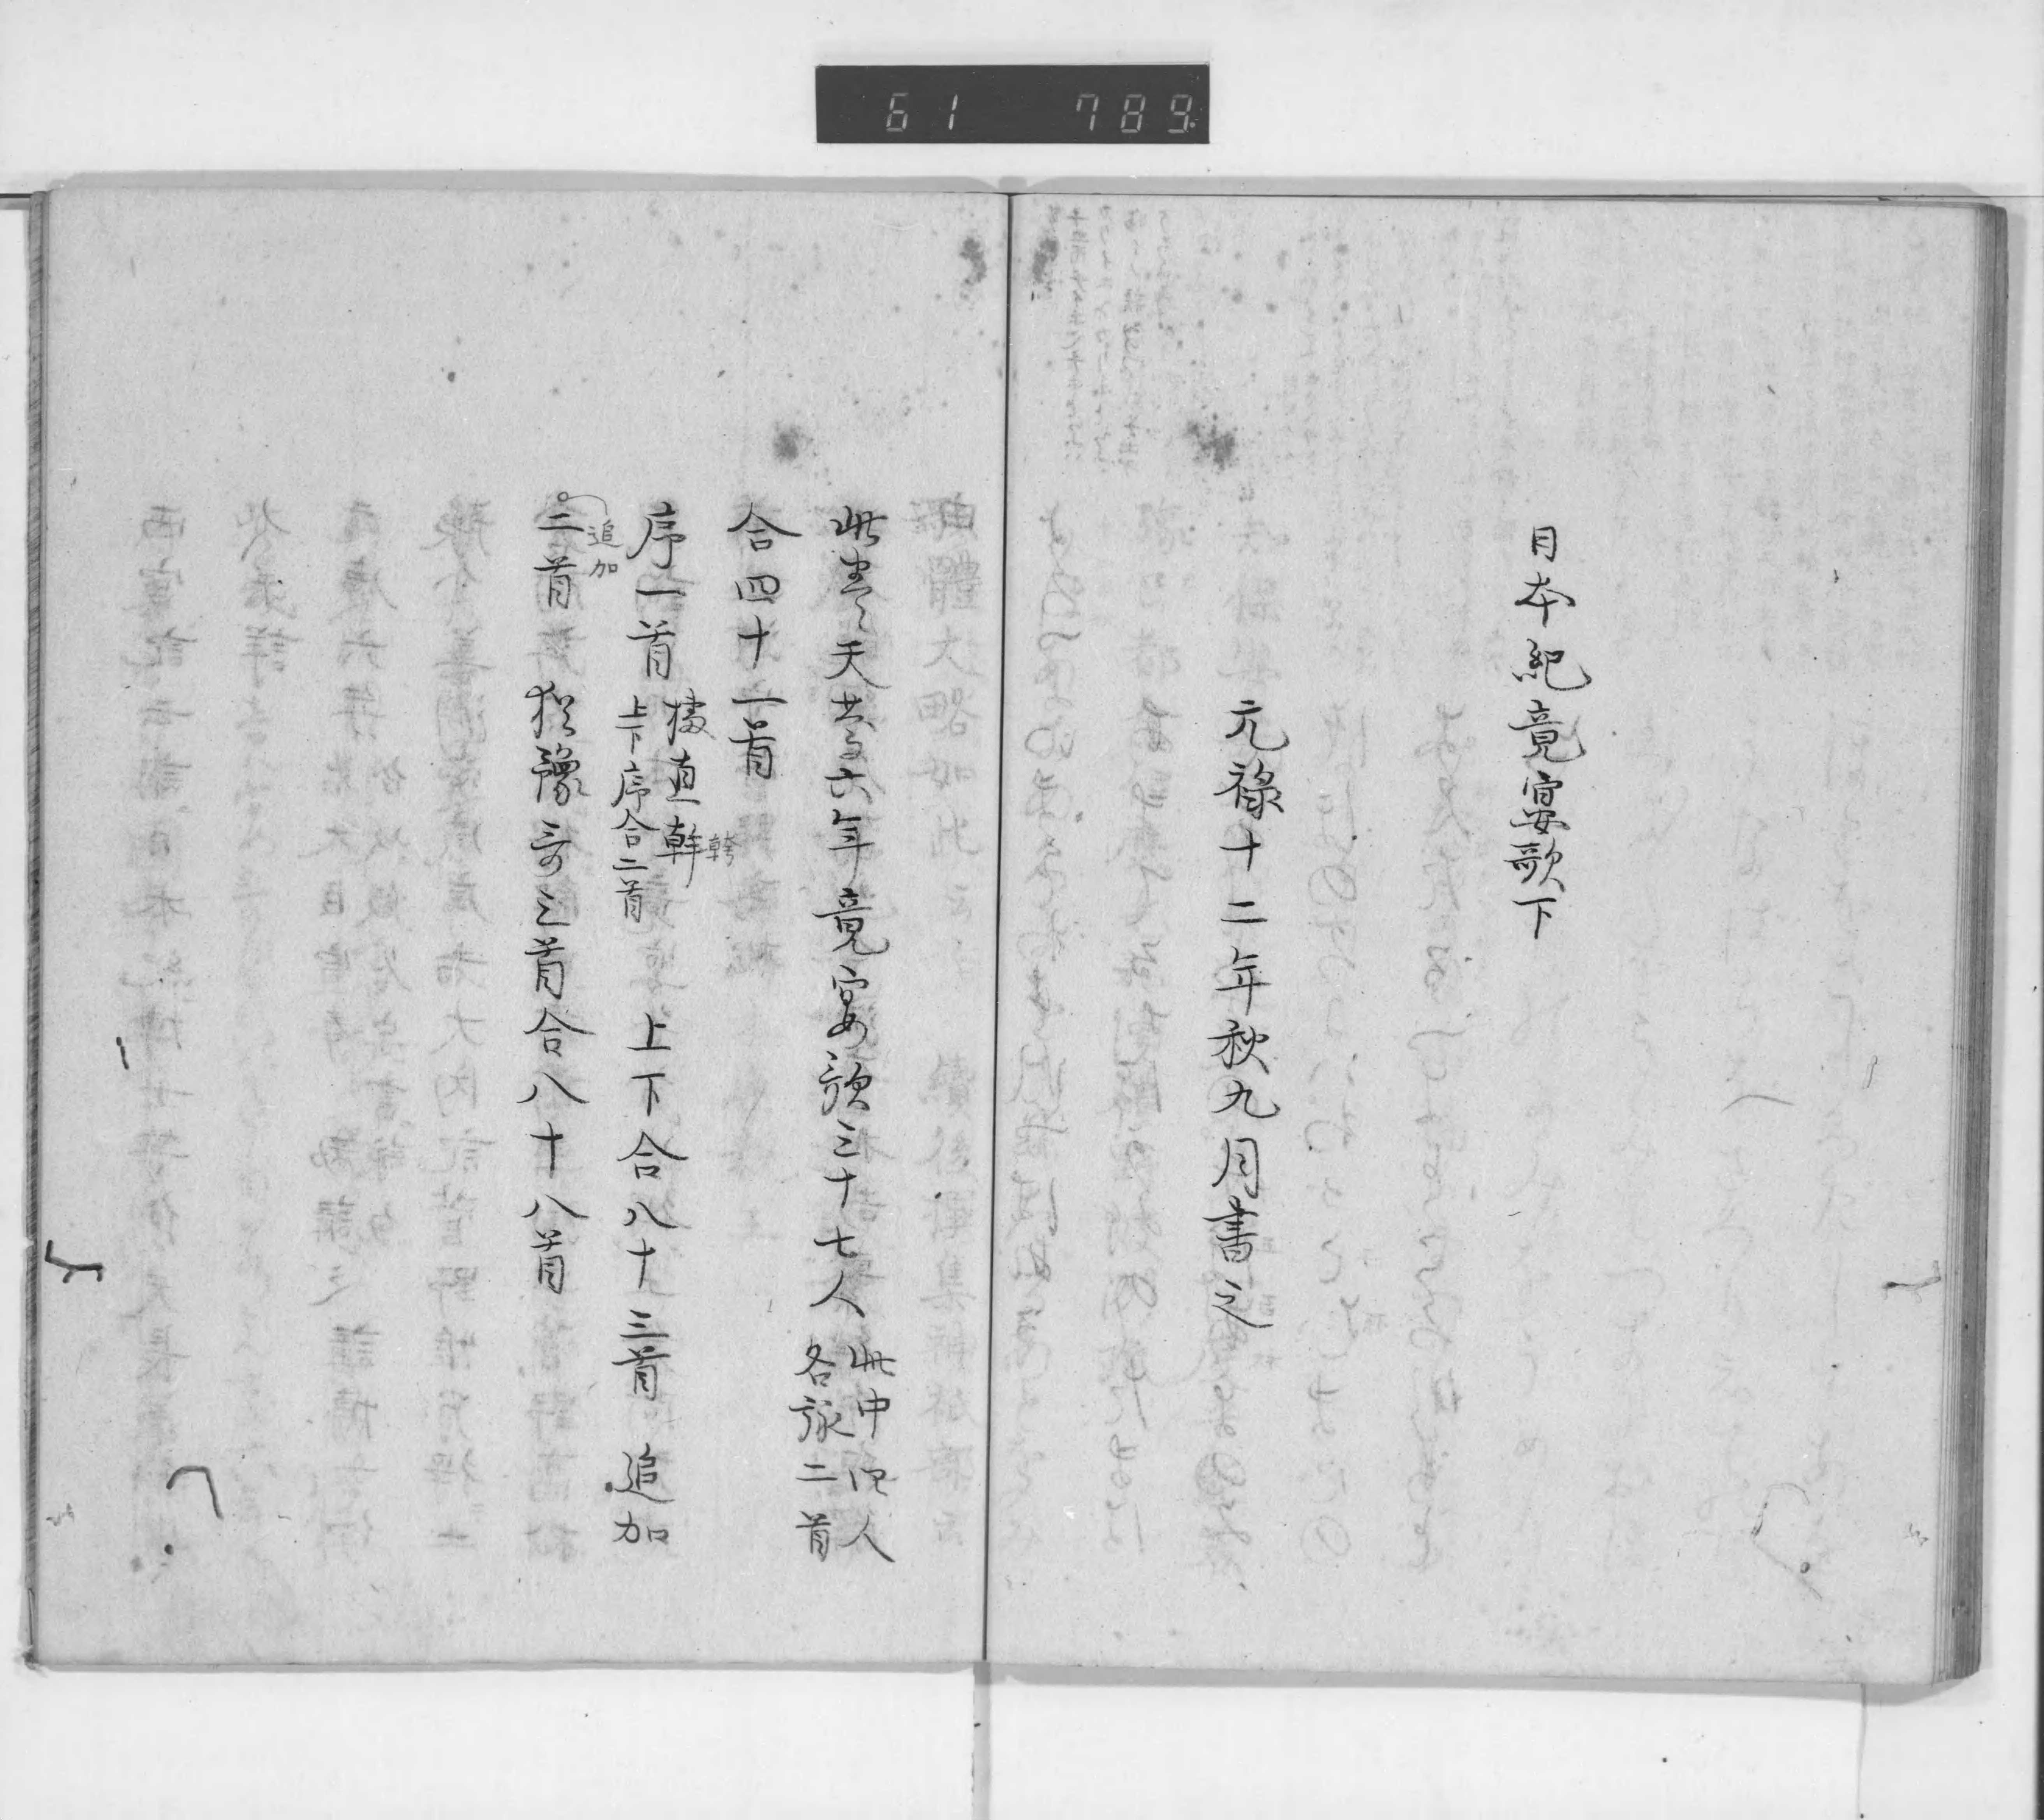 61 789
日本紀竟宴歌下
元禄十二年秋九月書之
此巻天慶六年竟宴歌三十七人 此中四人各詠二首
合四十一首
序一首 橘直幹 上下序合二首 上下合八十三首 追加
二首 猶豫哥三首合八十八首
追加